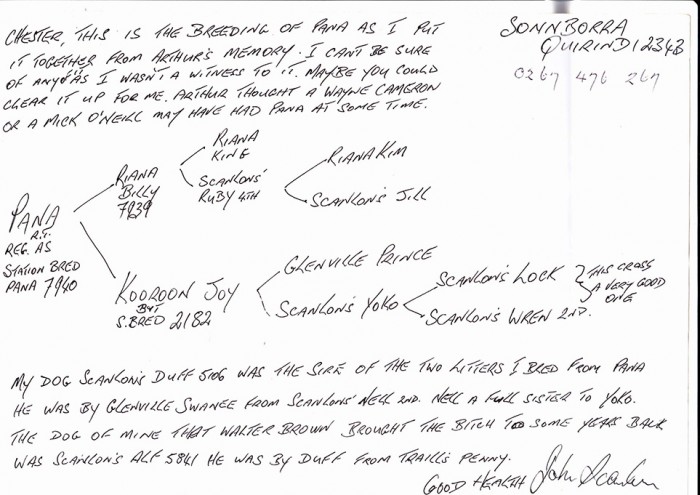 CHESTER, THIS IS THE BREEDING OF PANA AS I PUT
IT TOGETHER FROM ARTHUR'S MEMORY. I CANT BE SURE
OF ANY AS I WASN'T A WITNESS TO IT. MAYBE YOU COULD
CLEAR IT UP FOR ME. ARTHUR THOUGHT A WAYNE CAMERON
OR A MICK O'NEILL MAY HAVE HAD PANA AT SOME TIME.
SONNBORRA
QUIRINDI 2343
0267 476 267
PANA
R.T.
REG. AS
STATION BRED
PANA 7940
RIANA
BILLY
7939
RIANA
KING
SCANLONS'
RUBY 4TH
RIANA KIM
SCANLON'S JILL
KOOROON JOY
BUT
S.BRED 2182
GLENVILLE PRINCE
SCANLON'S YOKO
SCANLON'S LOCK
SCANLON'S WREN 2ND.
THIS CROSS
A VERY GOOD
ONE
MY DOG SCANLON'S DUFF 5106 WAS THE SIRE OF THE TWO LITTERS I BRED FROM PANA
HE WAS BY GLENVILLE SWANEE FROM SCANLONS' NELL 2ND. NELL A FULL SISTER TO YOKO.
THE DOG OF MINE THAT WALTER BROWN BROUGHT THE BITCH TOO SOME YEARS BACK
WAS SCANLON'S ALF 5841 HE WAS BY DUFF FROM TRAILL'S PENNY.
GOOD HEALTH John Scanlon